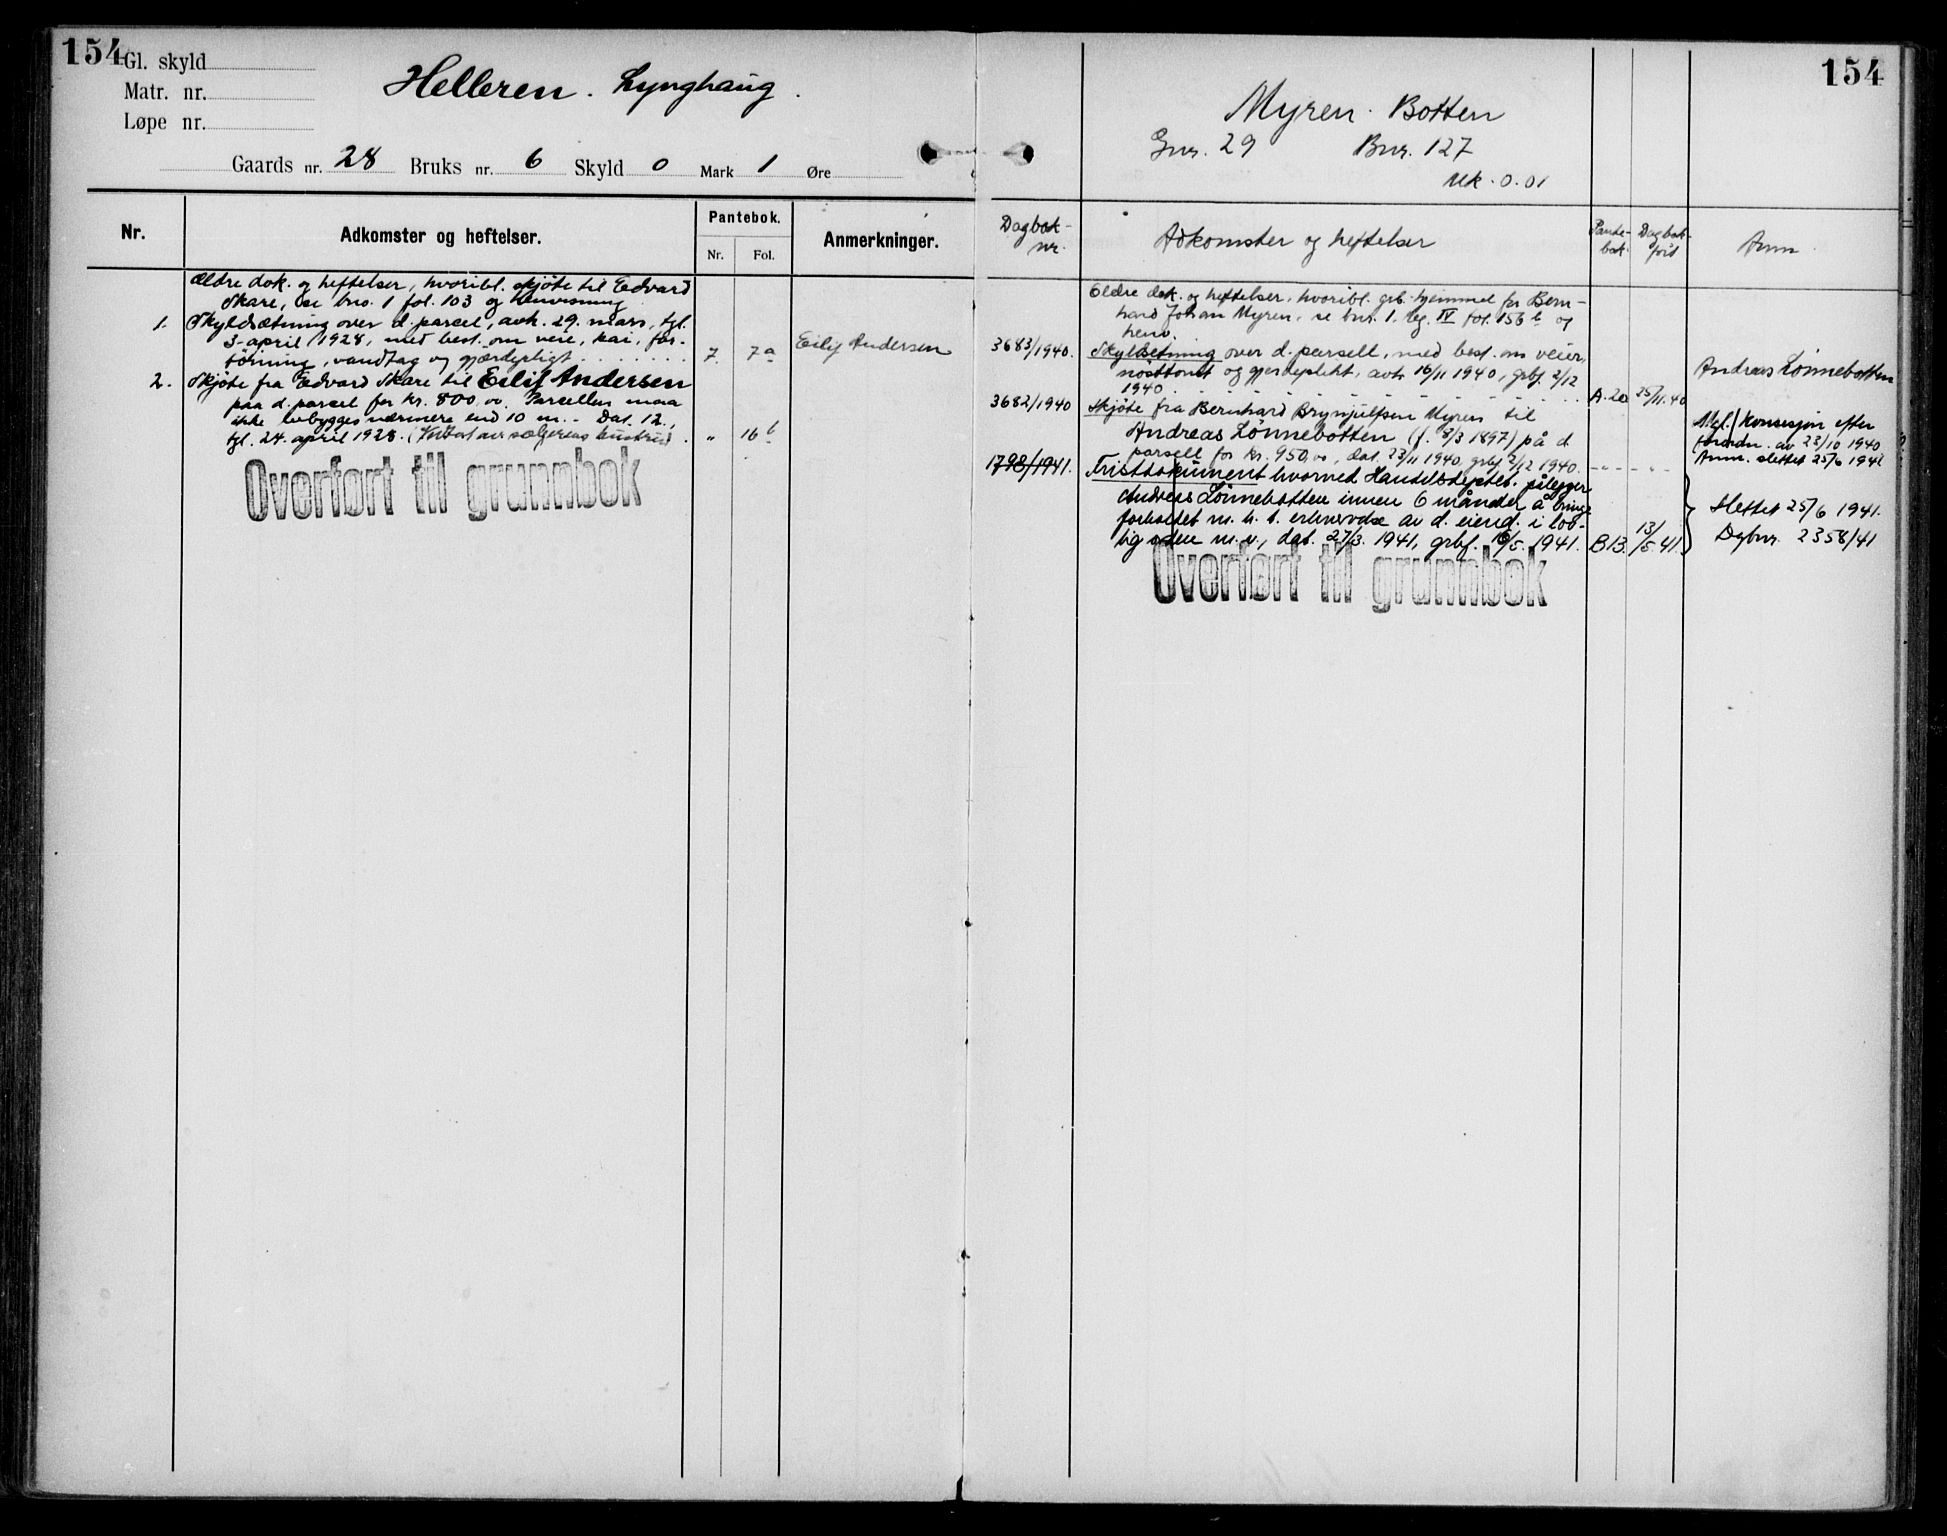 154
Gl. skyld
Matr. nr.
Løpe nr.
Helleren. Lynghaug.
Gaards nr. 28 Bruks nr. 6 Skyld 0 Mark 1 Øre
Nr. Adkomster og heftelser. Pantebok. Nr. Fol. Anmerkninger.
Ældre dok. og heftelser, hvoribl. skjøte til Edvard
Skare, se bno. 1 fol. 103 og henvisning
1. Skyldsætning over d. parcel, avh. 29. mars, tgl.
3. april 1928, med best. om veie, kai, for-
tøining, vandtag og gjærdepligt 7. 7a Eilif Andersen
2. Skjøte fra Edvard Skare til Eilif Andersen
paa d. parcel for kr. 800.00. Parcellen maa
ikke bebygges nærmere end 10 m. - Dat. 12.,
tgl. 24. april 1928. ( av sælgerens hustru). " 16b
Overført til grunnbok
154
Myren. Botten
Gnr. 29 Bnr. 127
Mk. 0.01
Dagbok-nr. Adkomster og heftelser Pante-bok. Dagbok-ført Anm.
Eldre dok. og heftelser, hvoribl. grb. hjemmel for Bern-
hard Johan Myren, se bnr. 1. leg. IV fol. 156b og
henv.
3683/1940. Skyldsetning over d. parsell, med best. om veier,
nøsttomt og gjerdeplikt, avh. 16/11 1940, grbf. 2/12
1940 A. 20 25/11.40 Andreas Lønnebotten
3682/1940 Skjøte fra Bernhard Brynjulfsen Myren til
Andreas Lønnebotten (f. 8/3 1897) på d.
parsell for kr. 950,00, dat. 23/11 1940, grbf. 2/12 1940. - " - - " -
Mgl. konsesjon efter
forordn. av 23/10 1940
Anm. slettet 25/6 1941
1798/1941. Fristdokument hvorved Handelsdeptet. pålegger
Andreas Lønnebotten innen 6 måneder å bringe
forholdet m. h. t. erhvervelse av d. eiend. i lov-
lig orden m. v., dat. 27/3. 1941, grbf. 16/5. 1941. B 13. 13/5.41.
Slettet 25/6 1941.
Dgbnr. 2358/41
Overført til grunnbok